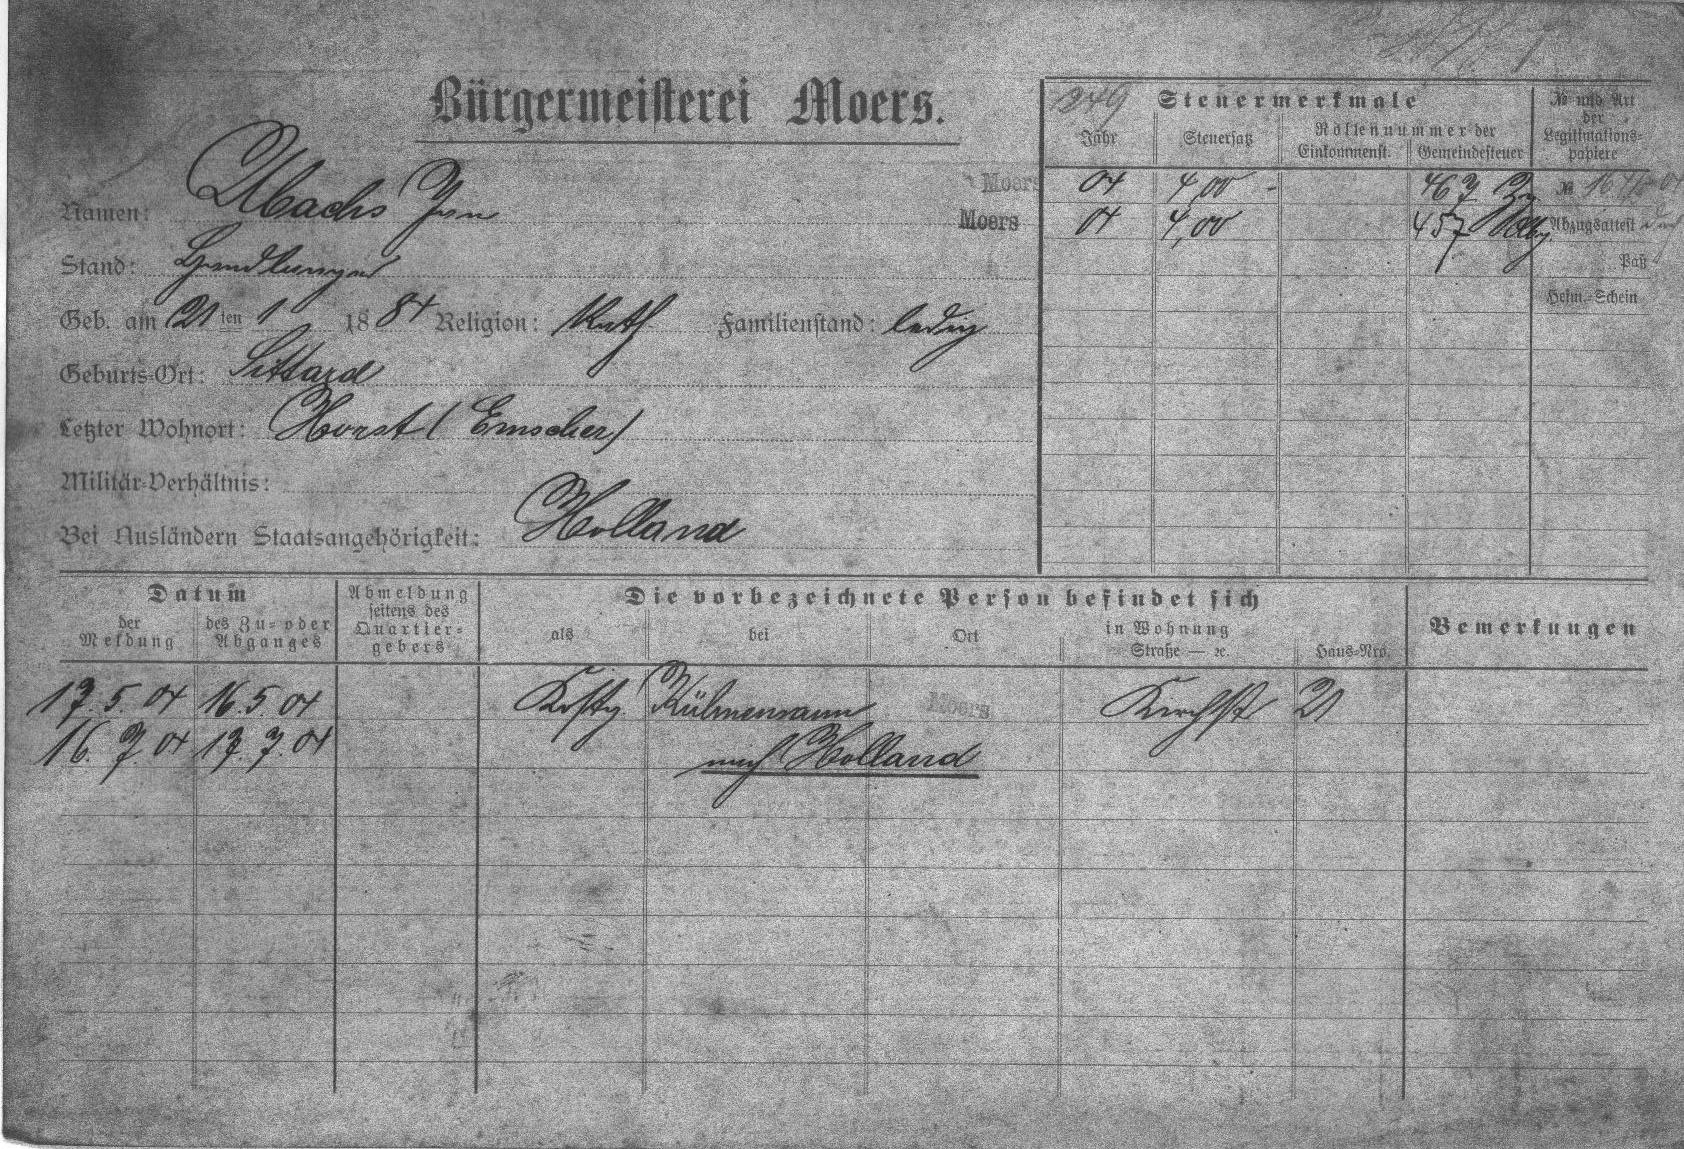 Bürgermeisterei Moers.
Namen: Abachs Jan
Moers
Moers
Stand: Handlanger
Geb. am 21ten 1 1884 Religion: Kath. Familienstand: ledig
Geburts-Ort: Sittard
Letzter Wohnort: Horst (Emscher)
Militär-Verhältnis:
Bei Ausländern Staatsangehörigkeit: Holland
1249 Steuermerkmale
Jahr Steuersatz Rollennummer der Einkommenst. Gemeindesteuer
№ und Art der Legitimations-papiere
04 4,00 - 467 №
04 4,00 457 Abzugsattest
Paß
Heim.-Schein
Datum der Meldung des Zu- oder Abganges
Abmeldung seitens des Quartier-gebers
Die vorbezeichnete Person befindet sich
als bei Ort in Wohnung Straße — ꝛc. Haus-Nro.
Bemerkungen
17.5.04 16.5.04 Kostg. Külmemann Moers Kirchstr 21
16.7.04 17.7.04 nach Holland